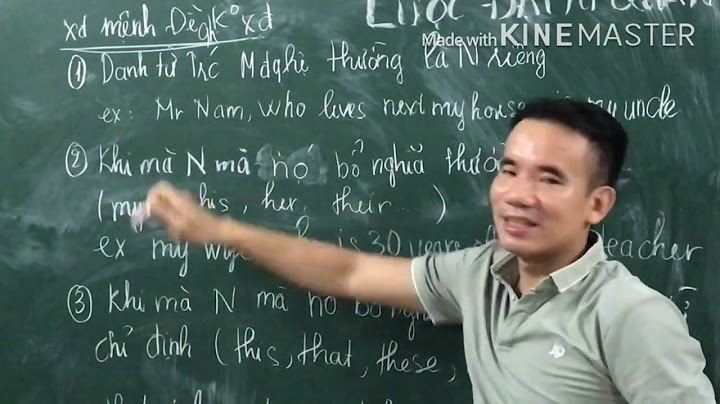 LƯỢC ĐẠI TỪ QUAN
Made with KINEMASTER
xđ mệnh Đề qh k° xđ
① Danh từ Trc Mđqhệ thường là N riêng
ex: Mr Nam, who lives next my house is my uncle
② Khi mà N mà nó bổ nghĩa thườ
(my, his, her, their ...)
ex my wife is 30 years teacher
③ Khi mà N mà nó bổ ngh
chỉ định (this, that, these,